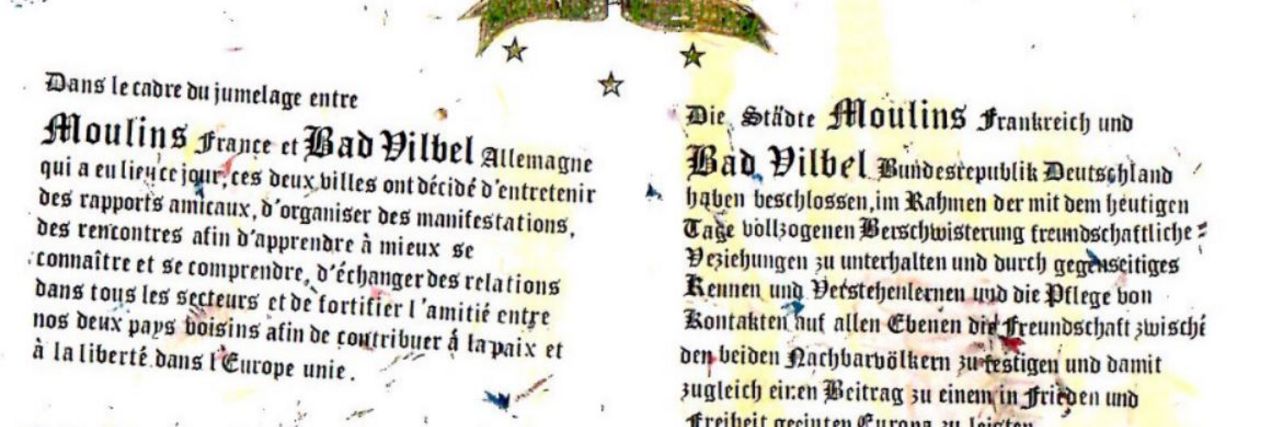 Dans le cadre du jumelage entre
Moulins France et Bad Vilbel Allemagne
qui a eu lieu ce jour, ces deux villes ont décidé d'entretenir
des rapports amicaux, d'organiser des manifestations,
des rencontres afin d'apprendre à mieux se
connaître et se comprendre, d'échanger des relations
dans tous les secteurs et de fortifier l'amitié entre
nos deux pays voisins afin de contribuer á la paix et
à la liberté dans l'Europe unie.
Die Städte Moulins Frankreich und
Bad Vilbel Bundesrepublik Deutschland
haben beschlossen, im Rahmen der mit dem heutigen
Tage vollzogenen Berschwisterung freundschaftliche
Beziehungen zu unterhalten und durch gegenseitiges
Kennen und Verstehenlernen und die Pflege von
Kontakten auf allen Ebenen die Freundschaft zwische
den beiden Nachbarvölkern zu festigen und damit
zugleich einen Beitrag zu einem in Frieden und
Freiheit geeinten Europa zu leisten